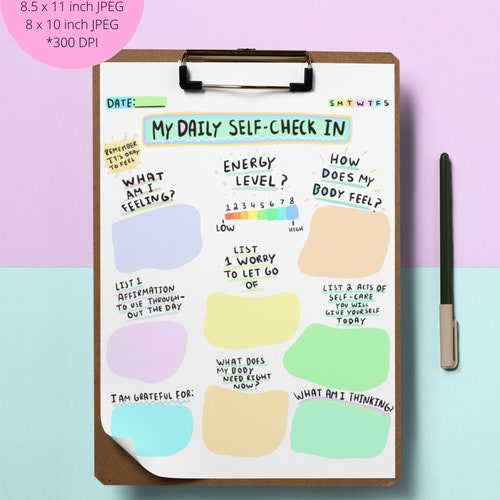 8.5 x 11 inch JPEG
8 x 10 inch JPEG
*300 DPI
DATE:
S M T W T F S
MY DAILY SELF-CHECK IN
REMEMBER
IT'S OKAY
TO FEEL
WHAT
AM I
FEELING?
ENERGY
LEVEL?
1 2 3 4 5 6 7 8
LOW
HIGH
HOW
DOES MY
BODY FEEL?
LIST 1
AFFIRMATION
TO USE THROUGH-
OUT THE DAY
LIST
1 WORRY
TO LET GO
OF
LIST 2 ACTS OF
SELF-CARE
YOU WILL
GIVE YOURSELF
TODAY
I AM GRATEFUL FOR:
WHAT DOES
MY BODY
NEED RIGHT
NOW?
WHAT AM I THINKING?